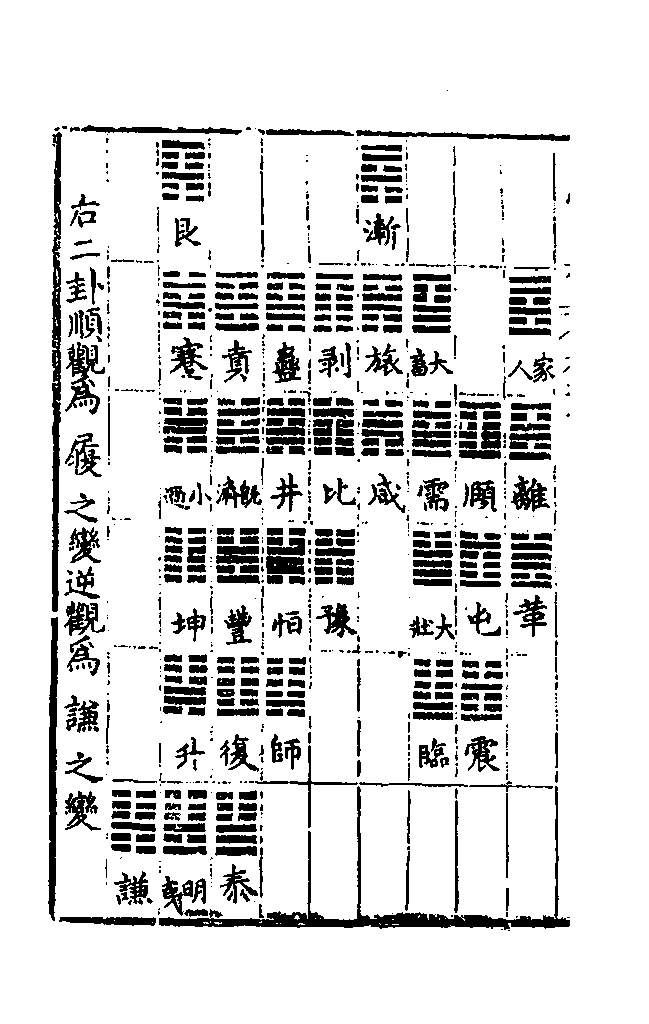 家人 離 革
頤 屯 震
大畜 需 大壯 臨
漸 旅 咸
剥 比 豫
蠱 井 恒 師
賁 既濟 豐 復 泰
艮 蹇 小過 坤 升 明夷
謙
右二卦順觀為履之變逆觀為謙之變